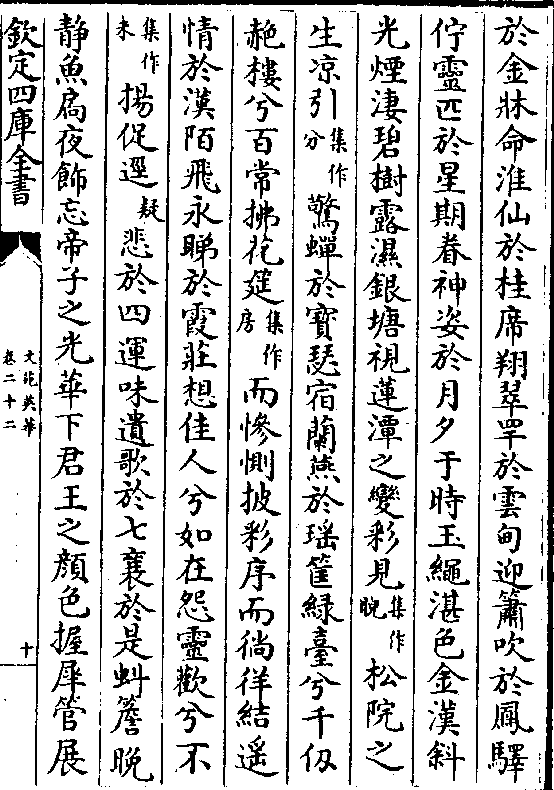 於金牀命淮仙於桂席翔翠罕於雲甸迎簫吹於鳳驛
佇靈匹於星期眷神姿於月夕于時玉繩湛色金漢斜
光煙淒碧樹露濕銀塘視蓮潭之變彩見集作晩松院之
生凉引集作分驚蟬於寳瑟宿蘭燕於瑶筐緑臺兮千仭
赩樓兮百常拂花筵集作房而慘惻披彩序而徜徉結遥
情於漢陌飛永睇於霞莊想佳人兮如在怨靈歡兮不
集作未揚促遥疑悲於四運味遺歌於七襄於是蚪簷晩
静魚扃夜飾忘帝子之光華下君王之顔色握犀管展
欽定四庫全書
文苑英華
卷二十二
十